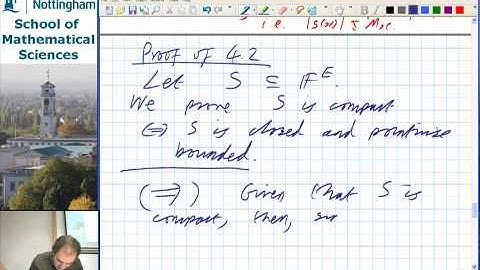 Nottingham
School of
Mathematical
Sciences
i.e. |s(x)| ≤ Mx.
Proof of 4.2
Let S ⊆ F^E.
We prove S is compact
⟺ S is closed and pointwise
bounded.
(⟹) Given that S is
compact, then, sin